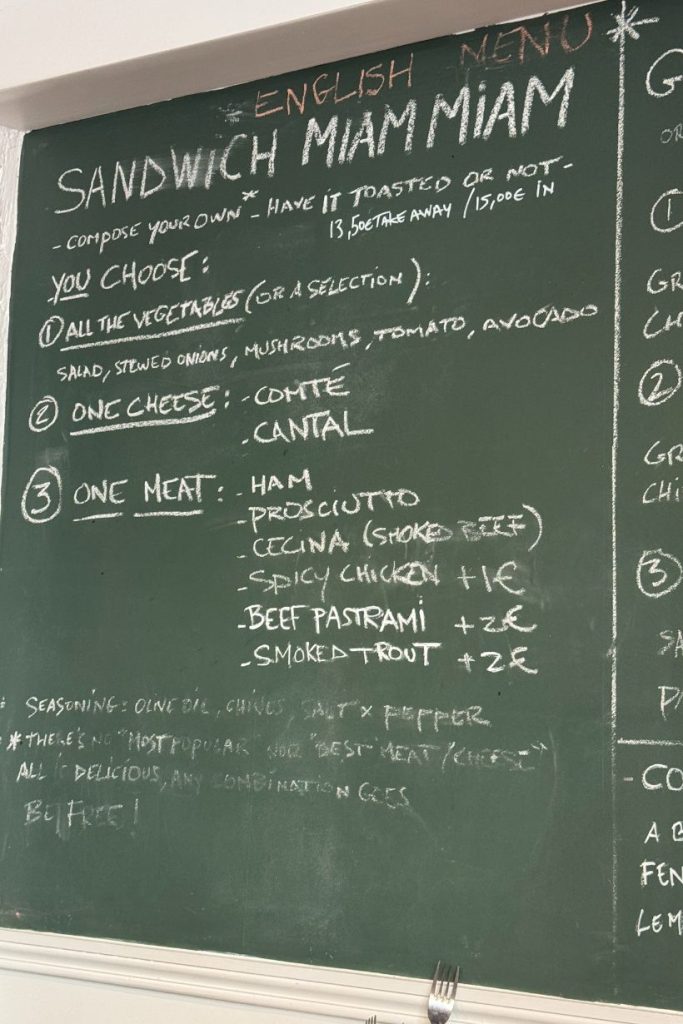 * ENGLISH MENU *
SANDWICH MIAM MIAM
- COMPOSE YOUR OWN* - HAVE IT TOASTED OR NOT -
13,50€ TAKE AWAY / 15,00€ IN
YOU CHOOSE:
① ALL THE VEGETABLES (OR A SELECTION):
SALAD, STEWED ONIONS, MUSHROOMS, TOMATO, AVOCADO
② ONE CHEESE: - COMTÉ
- CANTAL
③ ONE MEAT: - HAM
- PROSCIUTTO
- CECINA (SMOKED BEEF)
- SPICY CHICKEN +1€
- BEEF PASTRAMI +2€
- SMOKED TROUT +2€
SEASONING: OLIVE OIL, CHIVES, SALT & PEPPER
* THERE'S NO "MOST POPULAR" NOR "BEST MEAT/CHEESE"
ALL IS DELICIOUS, ANY COMBINATION GOES
BE FREE!
G
OR
①
GR
CH
②
GR
CHI
③
SA
P
- CO
A B
FEN
LEM